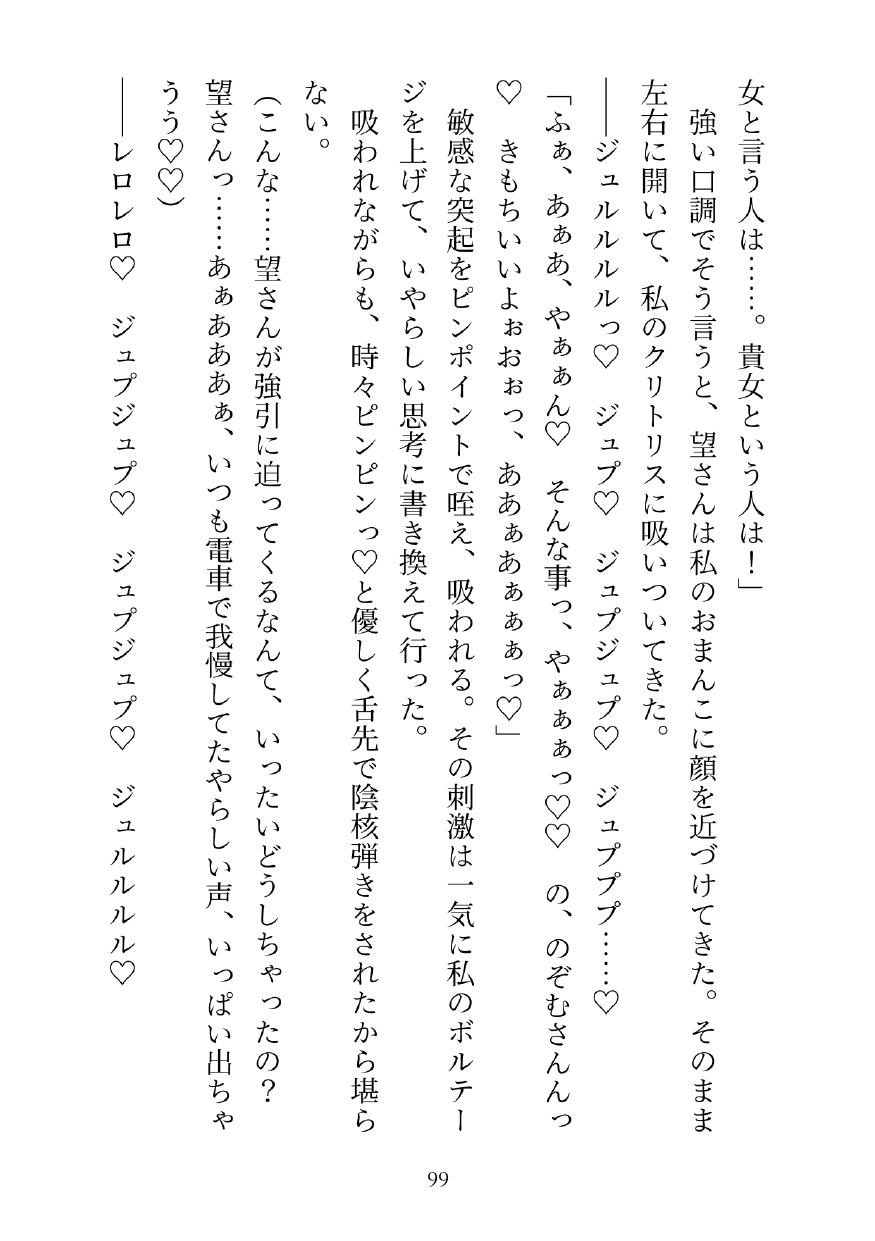 女と言う人は……。貴女という人は！」
　強い口調でそう言うと、望さんは私のおまんこに顔を近づけてきた。そのまま
左右に開いて、私のクリトリスに吸いついてきた。
――ジュルルルルっ♡　ジュプ♡　ジュプジュプ♡　ジュププププ……♡
「ふぁ、あぁあ、やぁぁん♡　そんな事っ、やぁぁぁっ♡♡　の、のぞむさんんっ
♡　きもちいいよぉおぉっ、ああぁあぁぁぁっ♡」
　敏感な突起をピンポイントで咥え、吸われる。その刺激は一気に私のボルテー
ジを上げて、いやらしい思考に書き換えて行った。
　吸われながらも、時々ピンピンっ♡と優しく舌先で陰核弾きをされたから堪ら
ない。
（こんな……望さんが強引に迫ってくるなんて、いったいどうしちゃったの？
望さんっ……あぁあああぁ、いつも電車で我慢してたやらしい声、いっぱい出ちゃ
うう♡♡）
――レロレロ♡　ジュプジュプ♡　ジュプジュプ♡　ジュルルルル♡
99